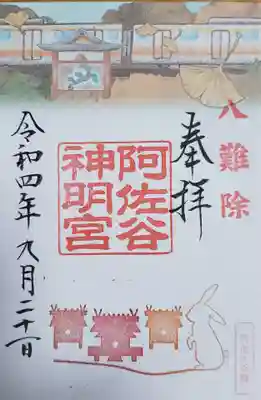 八難除
奉拝
阿佐谷
神明宮
令和四年九月二十一日